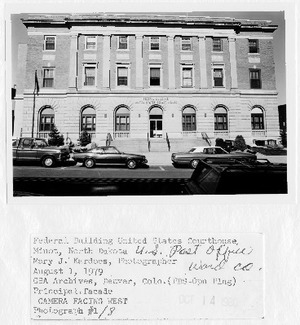 Federal Building United States Courthouse
Minot, North Dakota U.S. (Post Office)
Mary J. Kerdoes, Photographer Ward Co.
August 1, 1979
GSA Archives, Denver, Colo. (PBS-Opn Plng)
Principal facade
CAMERA FACING WEST
Photograph #1/8